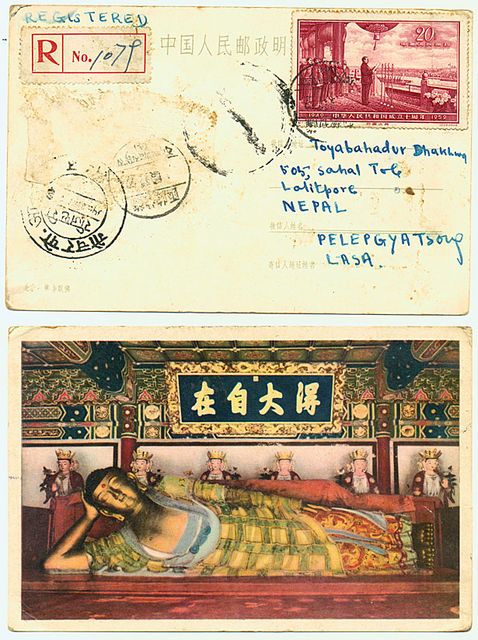 REGISTERED
R No. 1079
中国人民邮政明
20
1949 中华人民共和国成立十周年 1959
Toyabahadur Dhakhwa
Sahal Tole
Lalitpore
NEPAL
PELEPGYATSong
LASA.
得大自在